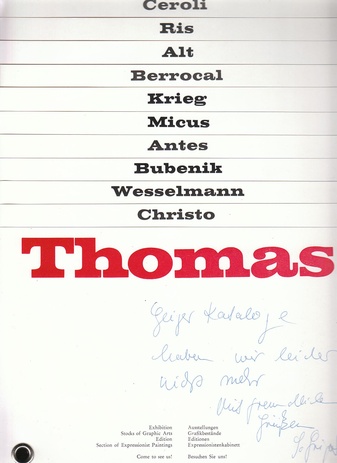 Ceroli
Ris
Alt
Berrocal
Krieg
Micus
Antes
Bubenik
Wesselmann
Christo
Thomas
Geiger Kataloge
haben wir leider
nicht mehr
Mit freundlichen
Grüßen
Exhibition
Stocks of Graphic Arts
Edition
Section of Expressionist Paintings
Come to see us!
Ausstellungen
Grafikbestände
Editionen
Expressionistenkabinett
Besuchen Sie uns!